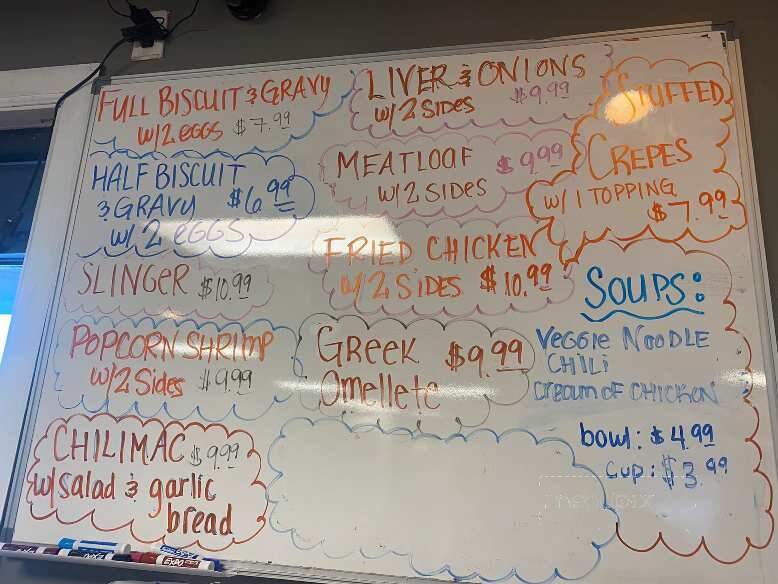 FULL BISCUIT & GRAVY
w/2 eggs $7.99
HALF BISCUIT
& GRAVY $6.99
w/ 2 eGGS
SLINGER $10.99
POPCORN SHRIMP
w/2 Sides $9.99
CHILIMAC $9.99
w/salad & garlic
bread
LIVER & ONIONS
w/ 2 SIDES $9.99
MEATLOAF $9.99
w/2 SIDES
FRIED CHICKEN
w/ 2 SIDES $10.99
GREEK $9.99
Omellete
STUFFED
CREPES
w/ 1 TOPPING
$7.99
SOUPS:
VEGGIE NOODLE
CHILI
CREAM OF CHICKEN
bowl: $4.99
cup: $3.99
EXPO